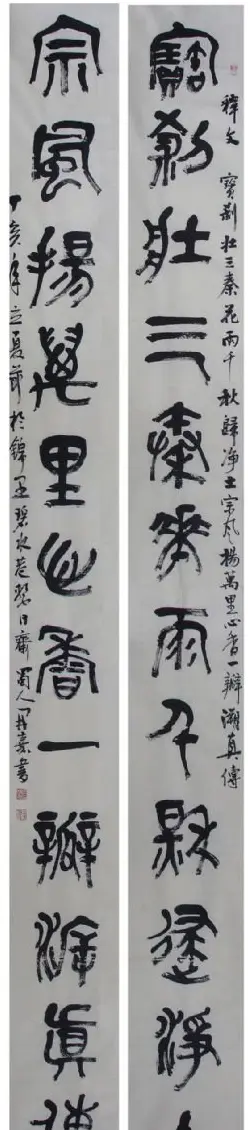 釋文 寶刹壯三秦花雨千秋歸净土宗風揚萬里心香一瓣溯真傳
寶刹壯三秦花雨千秋歸淨
宗風揚萬里心香一瓣溯真傳
丁亥年立夏節於錦里碧水苑日齋蜀人書